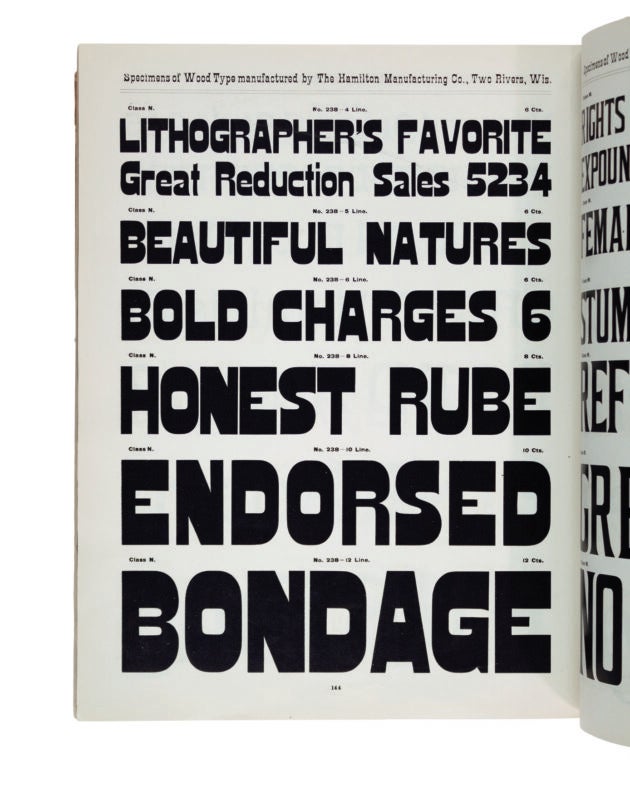 Specimens of Wood Type manufactured by The Hamilton Manufacturing Co., Two Rivers, Wis.
Class N. No. 238—4 Line. 6 Cts.
LITHOGRAPHER'S FAVORITE
Great Reduction Sales 5234
Class N. No. 238—5 Line. 6 Cts.
BEAUTIFUL NATURES
Class N. No. 238—6 Line. 6 Cts.
BOLD CHARGES 6
Class N. No. 238—8 Line. 8 Cts.
HONEST RUBE
Class N. No. 238—10 Line. 10 Cts.
ENDORSED
Class N. No. 238—12 Line. 12 Cts.
BONDAGE
144
Specimens of Wood
RIGHTS
EXPOUN
FEMA
STUM
REF
GRE
NO